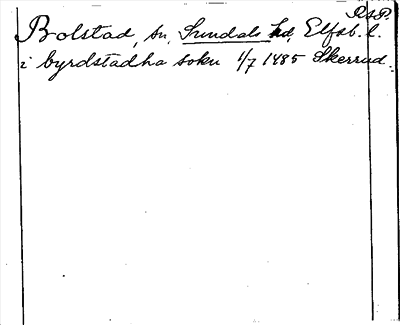 Bolstad, sn, Sundals hd, Elfsb. l.
i byrdstadha sokn 1/7 1485 Skerrud.